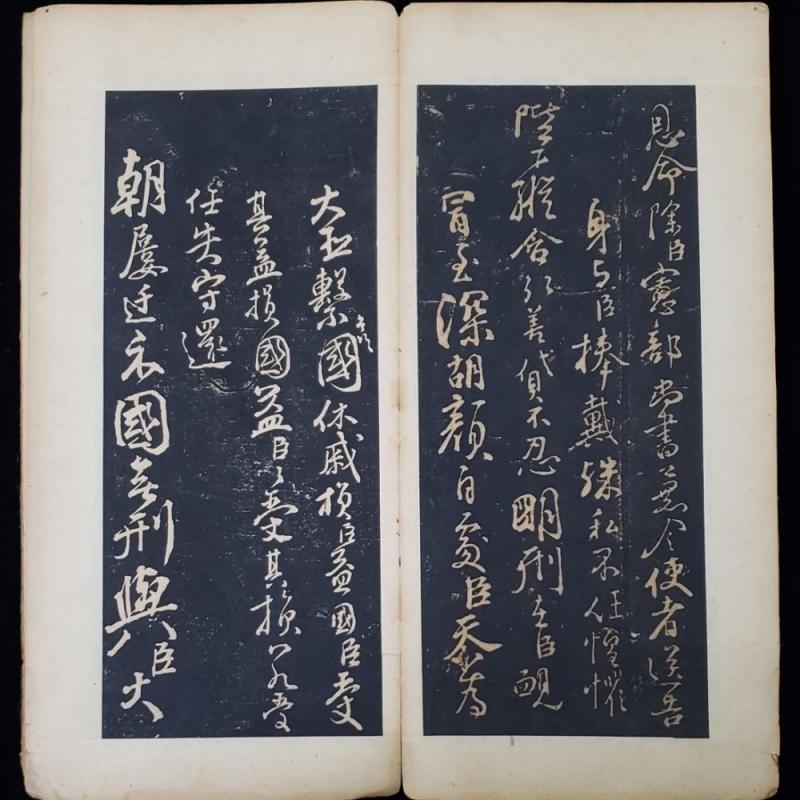 恩命除臣憲部尚書兼令使者送告
身与臣捧戴殊私不任惶懼
陛下縱含弘善貸不忍明刑在臣覥
冒至深胡顏自處臣忝爲
大臣繫國休戚損臣益國臣受
其益損國益臣臣受其損若受
任失守還
朝屢迁示國無刑與臣大